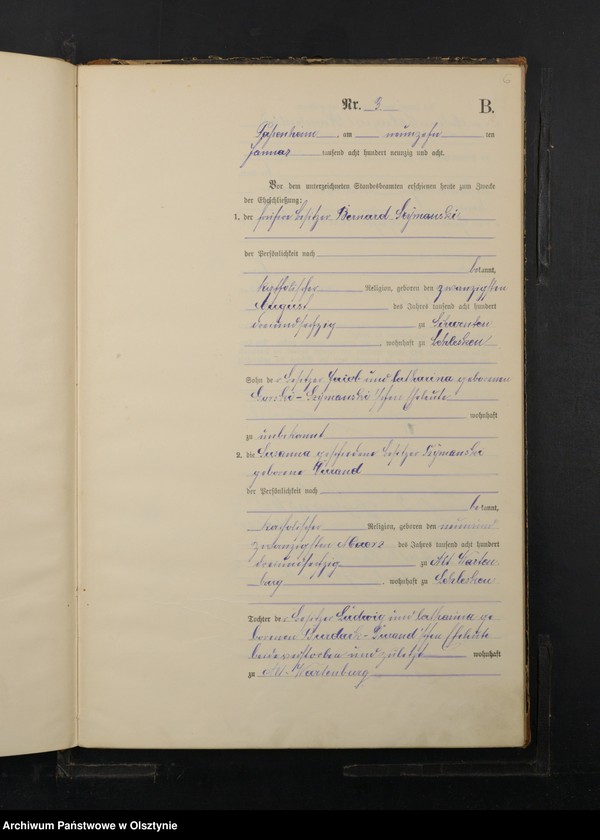 6
Nr. 3 B.
am neunzehn ten
Januar tausend acht hundert neunzig und acht.
Vor dem unterzeichneten Standesbeamten erschienen heute zum Zwecke
der Eheschließung:
1. der frühere Besitzer Bernard Szymanski
der Persönlichkeit nach
bekannt,
katholischer Religion, geboren den zwanzigsten
August des Jahres tausend acht hundert
dreiundsechzig zu
, wohnhaft zu Schlesken
Sohn der Besitzer Jacob und Catharina geborenen
Gorski-Szymanski'schen Eheleute
wohnhaft
zu unbekannt
2. die Susanna geschiedene Besitzer Szymanski
geborene
der Persönlichkeit nach
bekannt,
katholischer Religion, geboren den neunund
zwanzigsten Maerz des Jahres tausend acht hundert
dreiundsechzig zu Alt Warten
burg , wohnhaft zu Schlesken
Tochter der Besitzer Ludwig und Catharina ge
borenen Eheleute
beide verstorben und zuletzt wohnhaft
zu Alt-Wartenburg
Archiwum Państwowe w Olsztynie